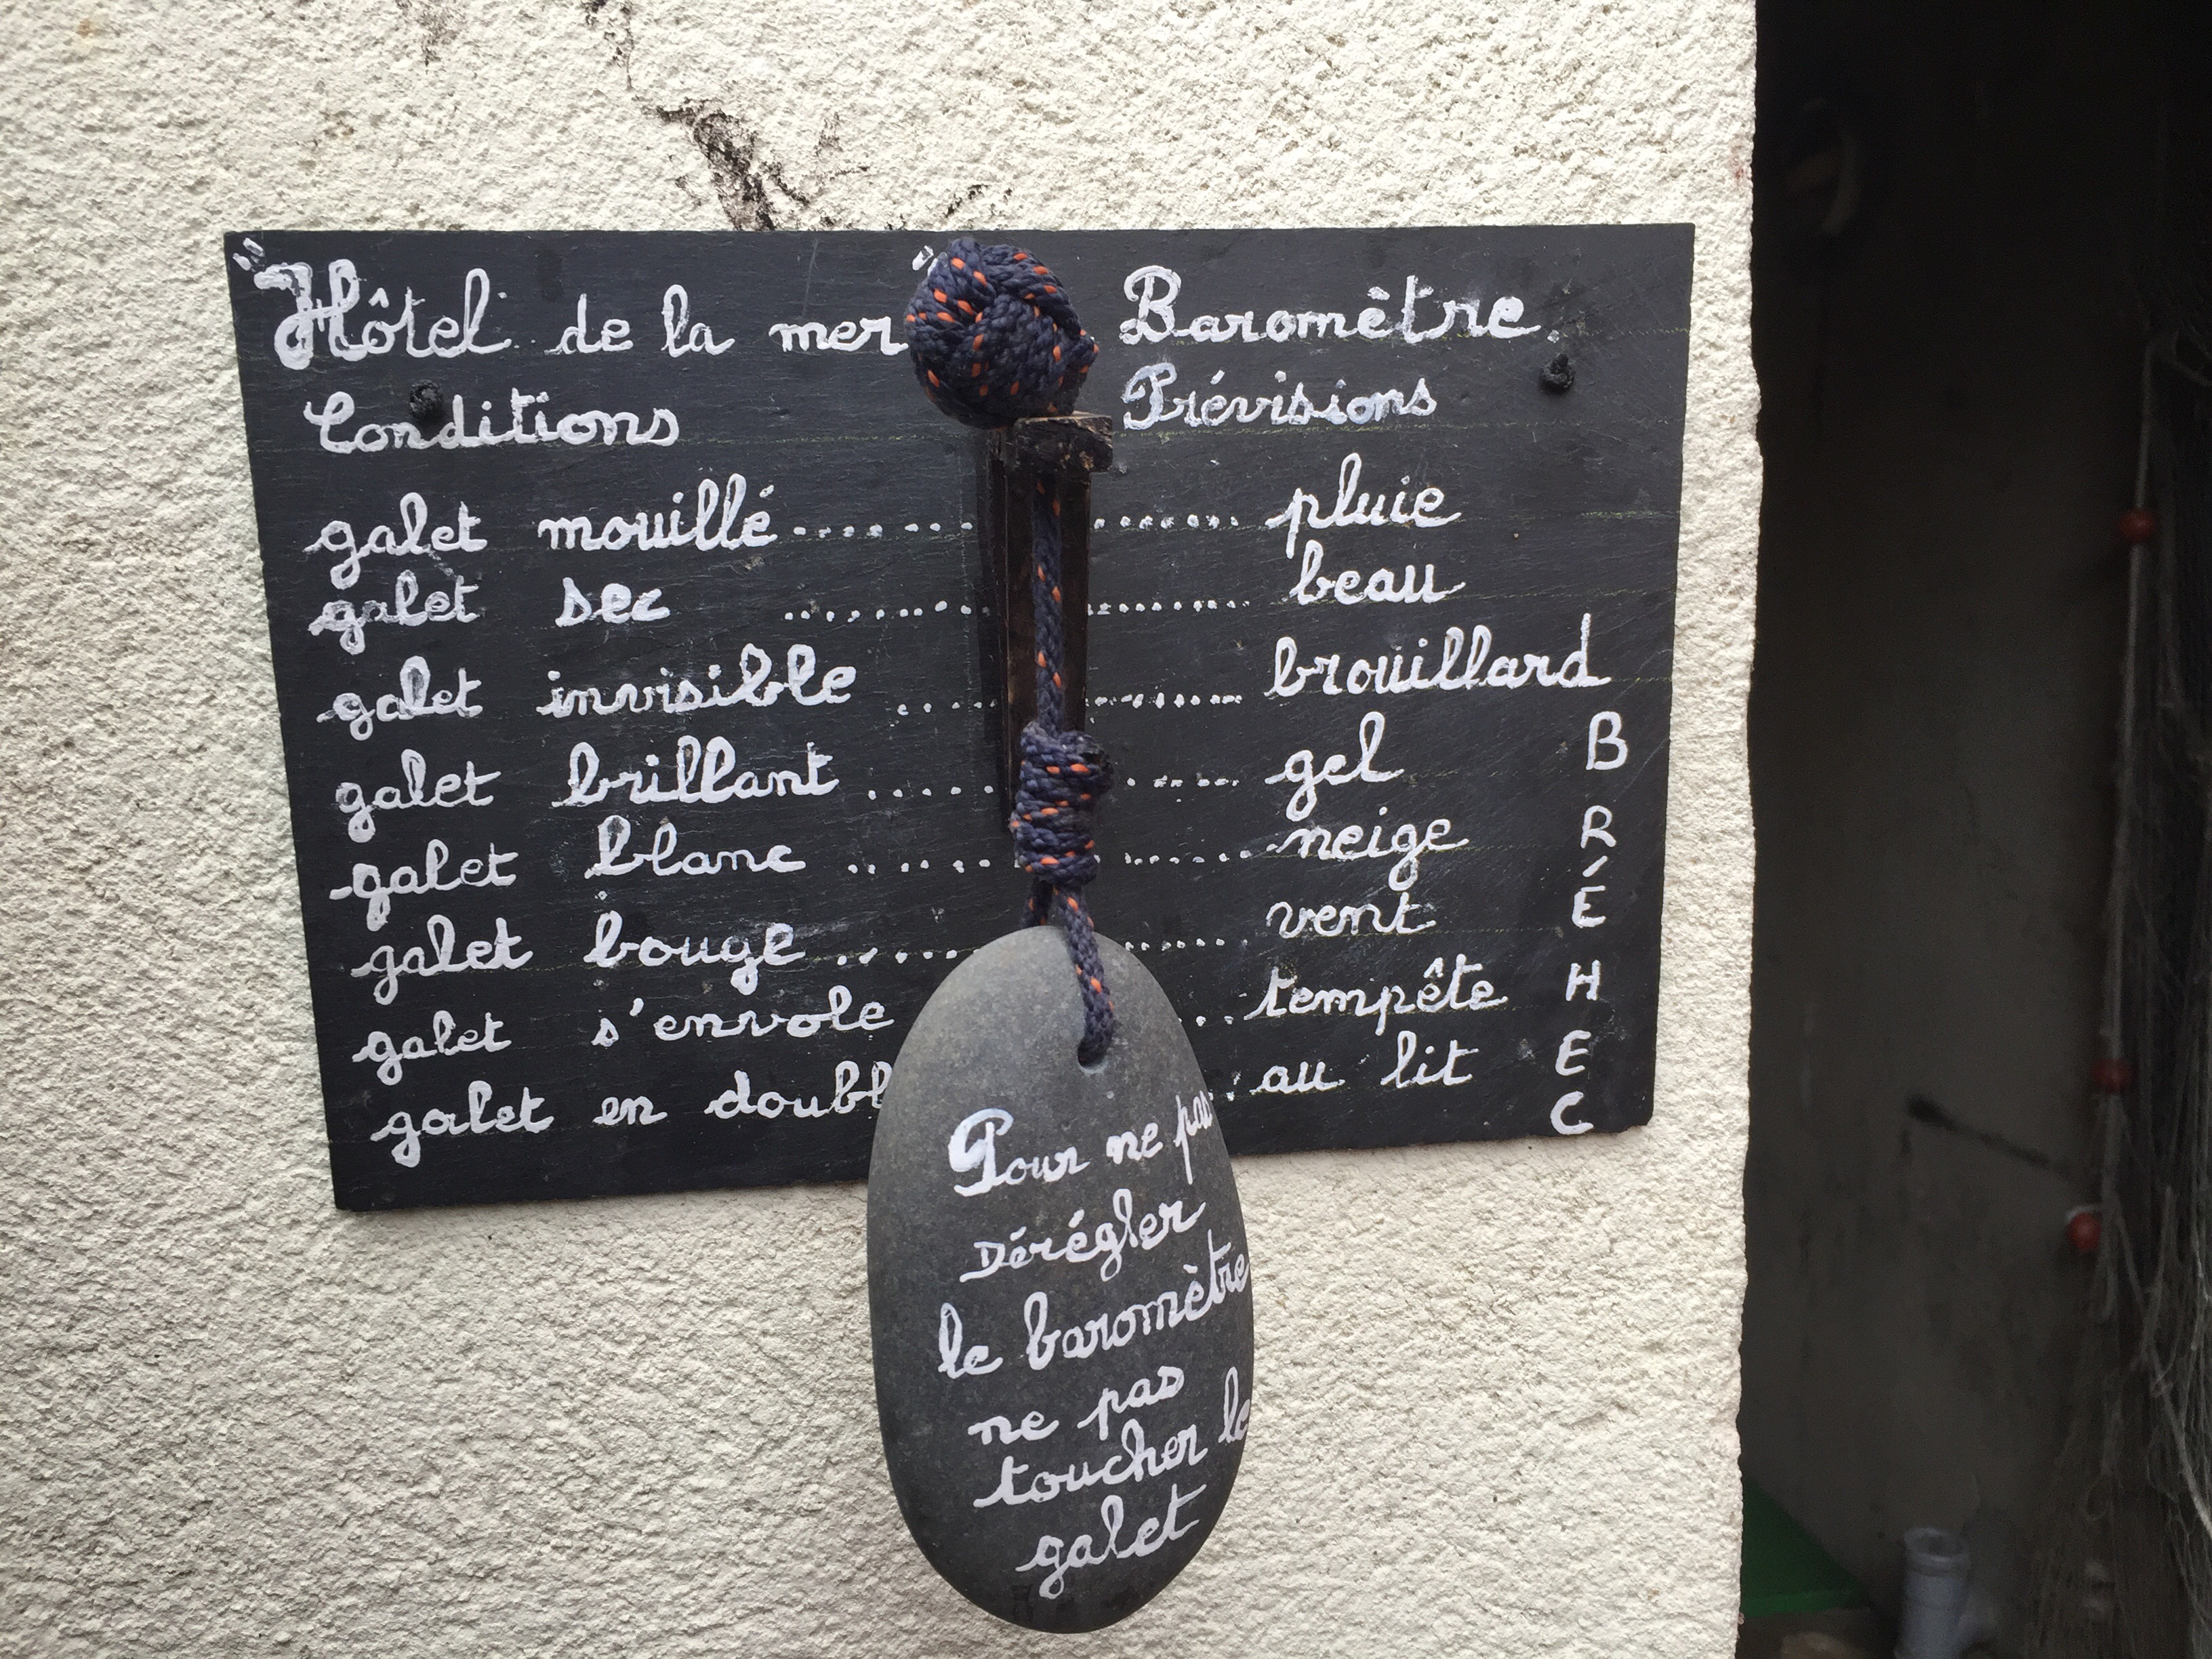 "Hôtel de la mer" Baromètre.
Conditions Prévisions
galet mouillé .................. pluie
galet sec .................. beau
galet invisible .................. brouillard
galet brillant .................. gel
galet blanc .................. neige
galet bouge .................. vent
galet s'envole ... tempête
galet en doubl .. au lit
B
R
É
H
E
C
Pour ne pas
Dérégler
le baromètre
ne pas
toucher le
galet